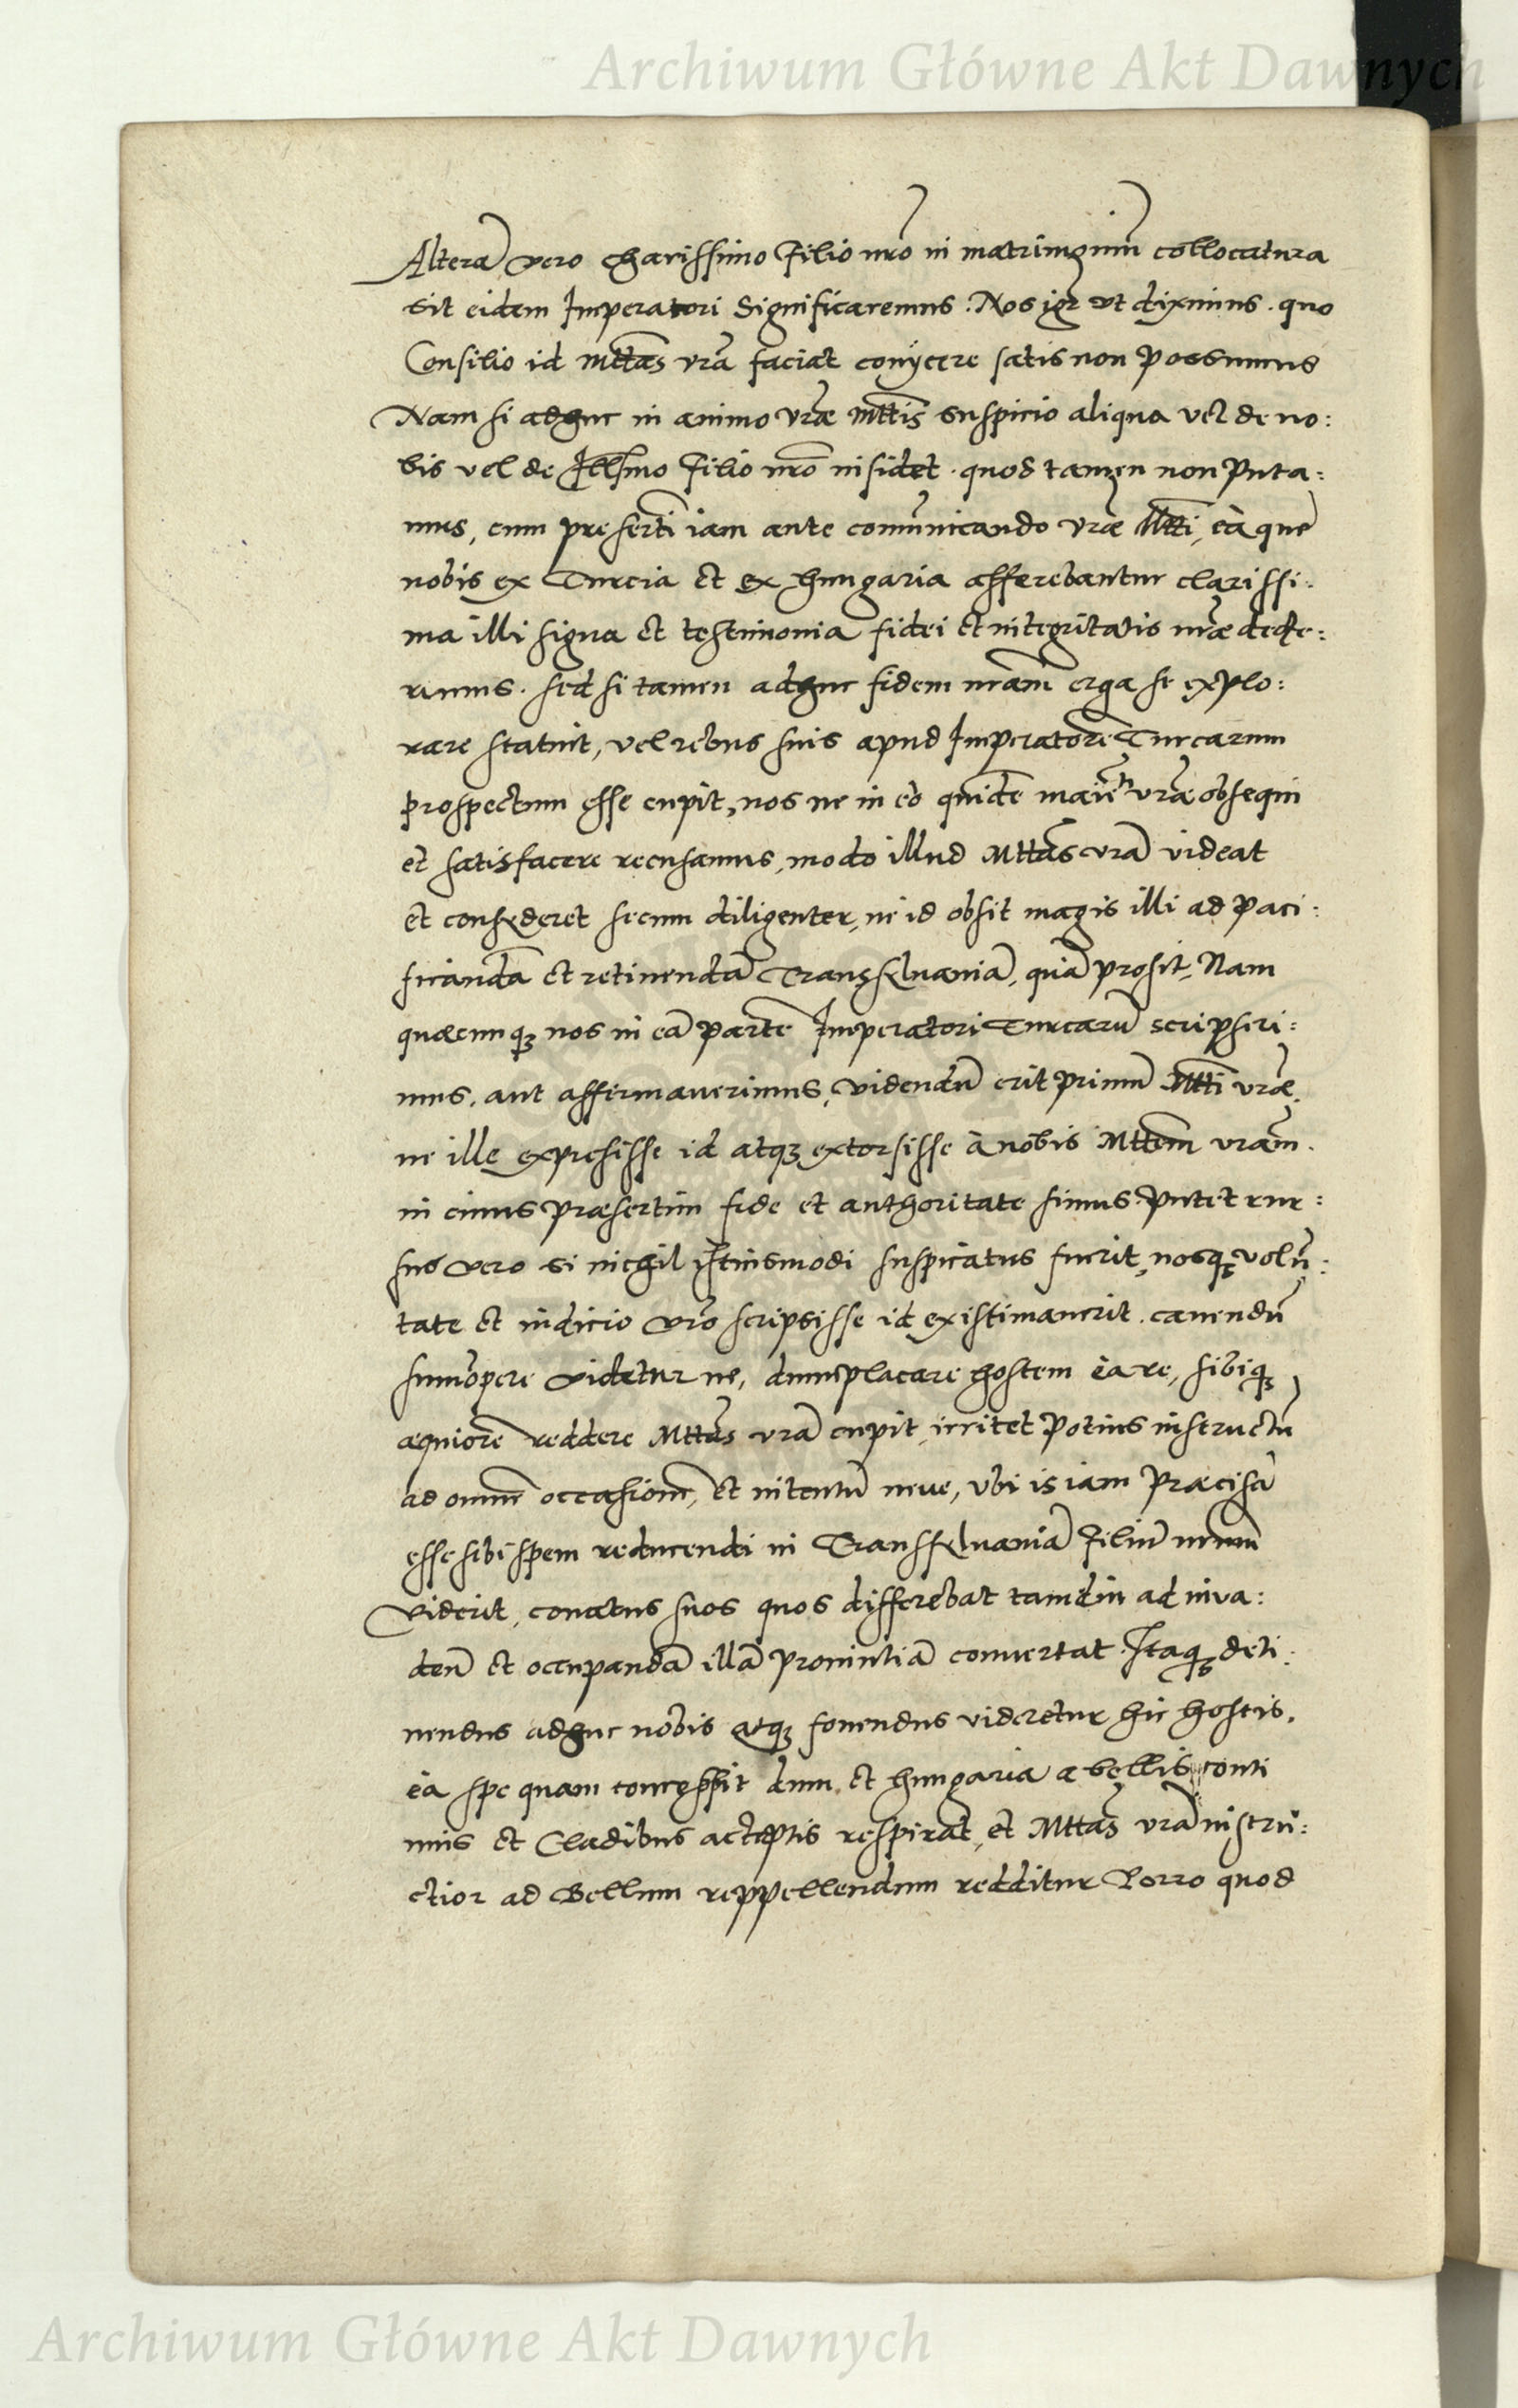 Archiwum Główne Akt Dawnych
Alterā vero charissimo Filio nr̃o in matrimoniũ collocatura
sit eidem Imperatori Significaremus. Nos igr̃ ut diximus. quo
Consilio id Mttas vr̃a faciat conÿcere satis non possumus
Nam si adhuc in animo vr̃ae Mttis suspicio aliqua vel de no:
bis vel de Illsmo Filio nr̃o insidet. quod tamen non Puta:
mus, cum presertī iam ante comũnicando vr̃ae Mtti, eà que
nobis ex Turcia et ex hungaria afferebantur clarissi:
ma illi signa et testimonia fidei et integritatis nr̃ae dede:
rimus. sed si tamen adhuc fidem nr̃am erga se explo:
rare statuit, vel rebus suis apud Imperatorē Turcarum
prospectum esse cupit, nos ne in eo quidē vr̃ae obsequi
et satisfacere recusamus, modo illud Mttas vr̃a videat
et consyderet secum diligenter, ne id obsit magis illi ad paci:
ficandā et retinendā Transsylvaniā, quā prosit, Nam
quaecunqz nos in eā partē Imperatori Turcarū scripseri:
mus, aut affirmaverimus, videndū erit primū Mtti vr̃ae,
ne ille expressisse id atqz extorsisse à nobis Mttem vr̃am.
in cuius praesertim fide et authoritate simus. putet rur:
sus vero si nichil istiusmodi suspicatus fuerit, nosqz volũ:
tate et iudicio vr̃o scripsisse id existimaverit. cavendū
summopere videtur ne, dum placare hostem eà re, sibiqz
aequiorē reddere Mttas vr̃a cupit, irritet potius instructū
ad omnē occasionē, et intentū neve, ubi is iam praecisā
esse sibi spem reducendi in Transsylvaniā Filiū nr̃um
viderit, conatus suos quos differebat tamdiu ad inva:
dendā et occupandā illā provintiā convertat. Itaqz deti:
nendus adhuc nobis atqz fovendus videretur hic hostis,
eà spe quam concessit dum et hungaria a bellis conti
nuis et Cladibus acceptis respirat, et Mttas vr̃a instru:
ctior ad Bellum reppellendum redditur Porro quod
Archiwum Główne Akt Dawnych